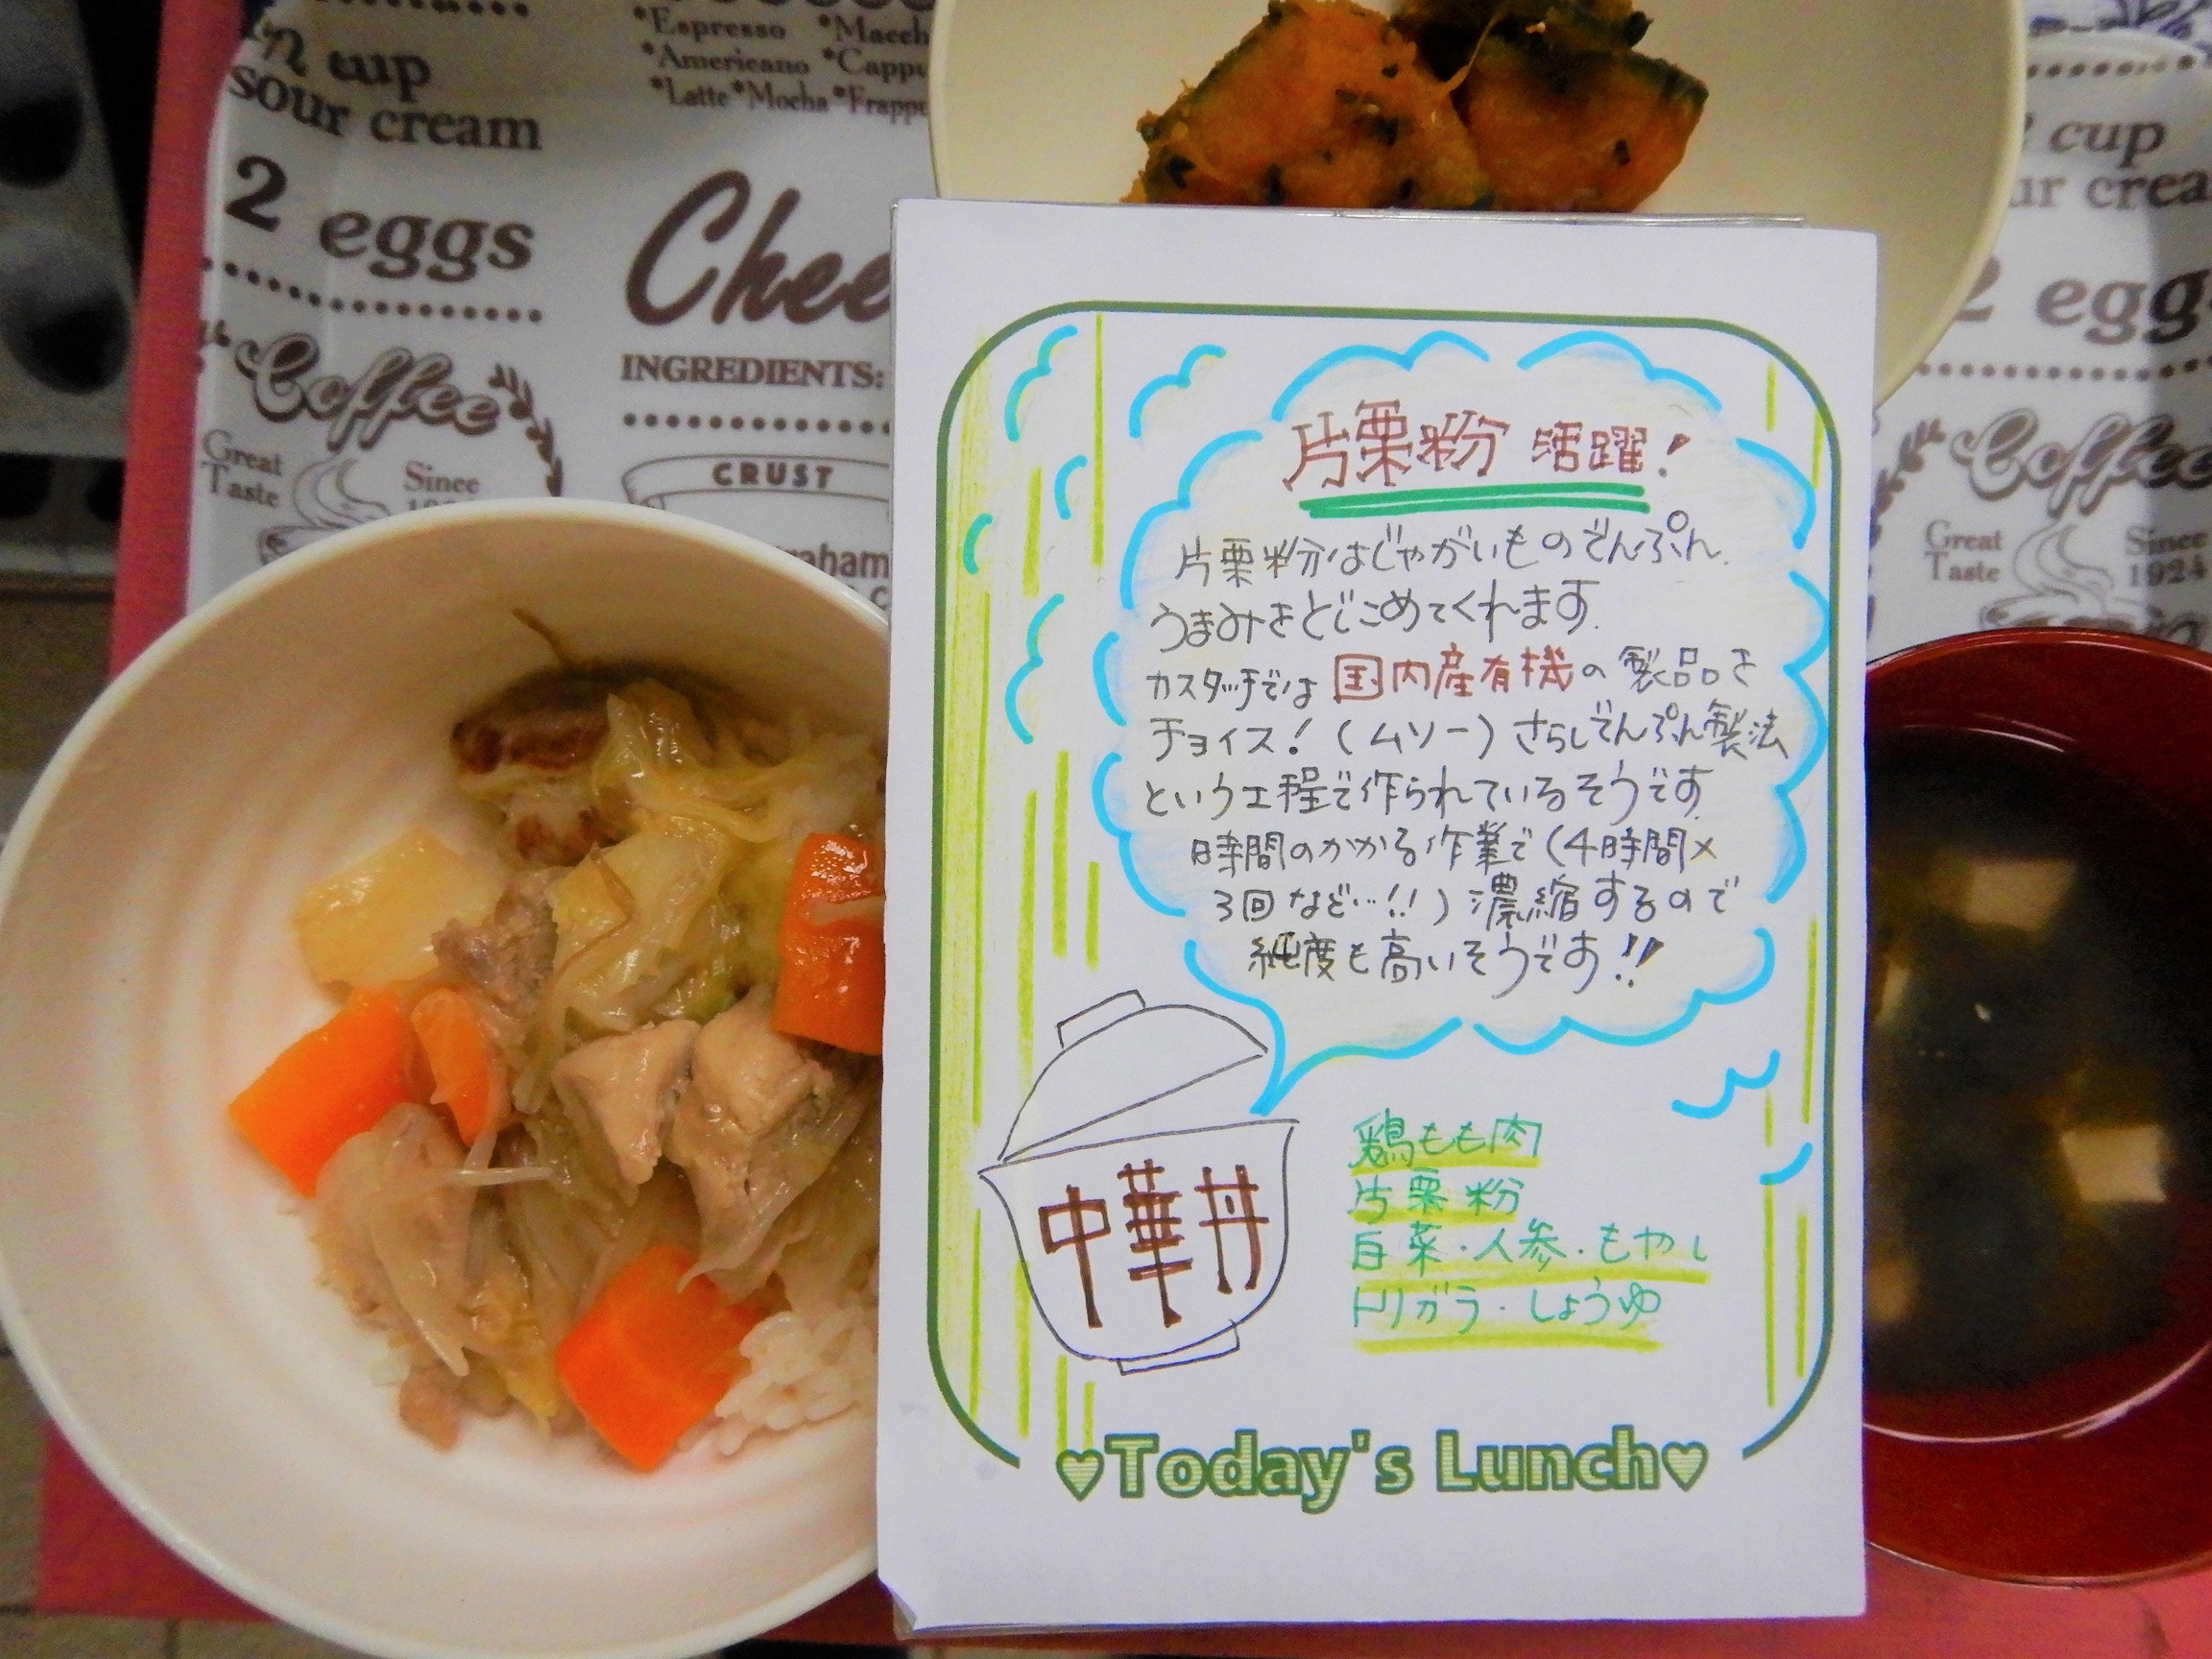 in cup
sour cream
2 eggs
Coffee
Great
Taste
Since
*Espresso *Macch
*Americano *Cappu
*Latte *Mocha *Frappu
Chee
INGREDIENTS:
CRUST
raham
片栗粉 活躍!
片栗粉はじゃがいものでんぷん.
うまみをとじこめてくれます.
カスタッチでは国内産有機の製品を
チョイス!(ムソー)さらしでんぷん製法
という工程で作られているそうです.
時間のかかる作業で(4時間×
3回など…!!)濃縮するので
純度も高いそうです!!
中華丼
鶏もも肉
片栗粉
白菜・人参・もやし
トリガラ・しょうゆ
♥Today's Lunch♥
cup
ur crea
2 egg
Coffee
Great
Taste
Since
1924